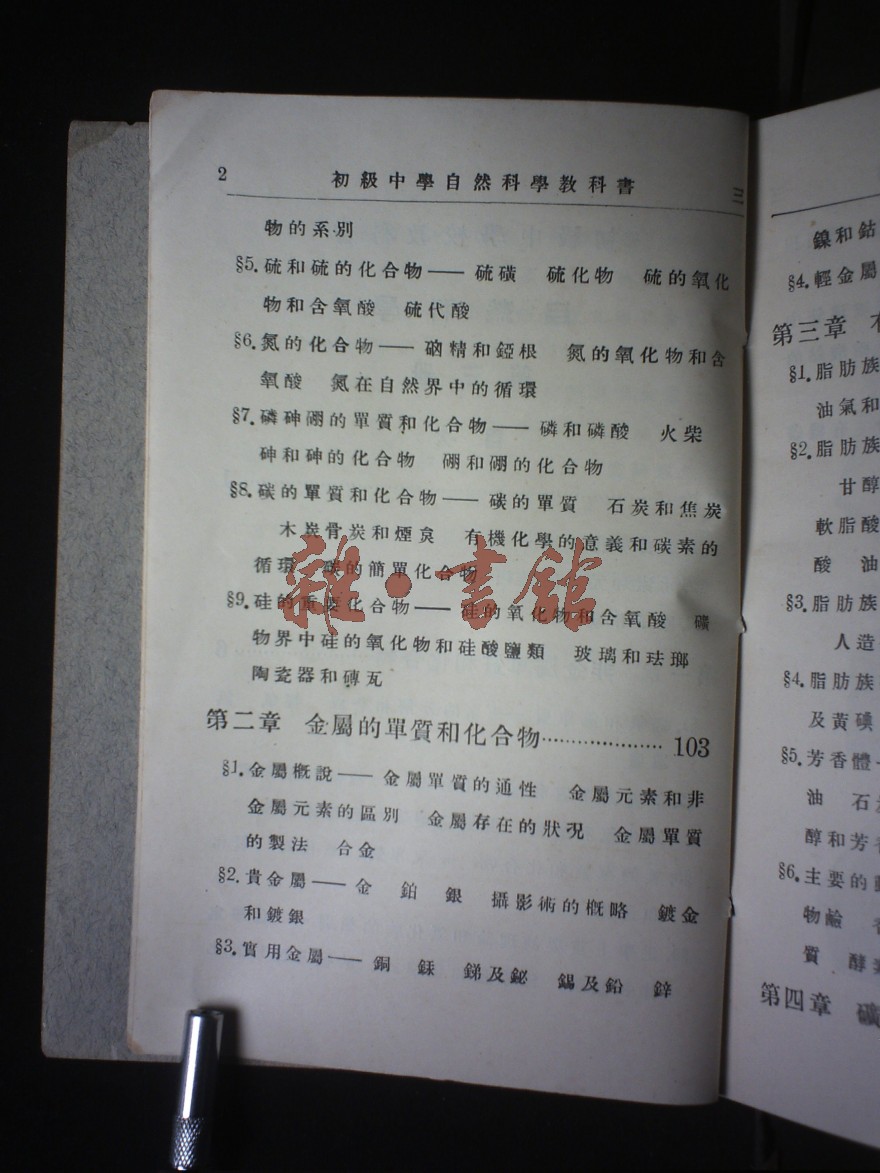 2 初級中學自然科學教科書 三
物的系別
§5.硫和硫的化合物—— 硫磺 硫化物 硫的氧化
物和含氧酸 硫代酸
§6.氮的化合物—— 硇精和錏根 氮的氧化物和含
氧酸 氮在自然界中的循環
§7.磷砷硼的單質和化合物—— 磷和磷酸 火柴
砷和砷的化合物 硼和硼的化合物
§8.碳的單質和化合物—— 碳的單質 石炭和焦炭
木炭骨炭和煙炱 有機化學的意義和碳素的
循環 碳的簡單化合物
§9.硅的重要化合物—— 硅的氧化物和含氧酸 礦
物界中硅的氧化物和硅酸鹽類 玻璃和珐瑯
陶瓷器和磚瓦
第二章 金屬的單質和化合物………………… 103
§1.金屬概說—— 金屬單質的通性 金屬元素和非
金屬元素的區別 金屬存在的狀況 金屬單質
的製法 合金
§2.貴金屬—— 金 鉑 銀 攝影術的概略 鍍金
和鍍銀
§3.實用金屬—— 銅 銾 銻及鉍 錫及鉛 鋅
雜·書館
鎳和鈷
§4.輕金屬
第三章
§1.脂肪族
油氣和
§2.脂肪族
甘醇
軟脂酸
酸 油
§3.脂肪族
人造
§4.脂肪族
及黃碘
§5.芳香體
油 石
醇和芳
§6.主要的
物鹼
質 酵素
第四章 礦